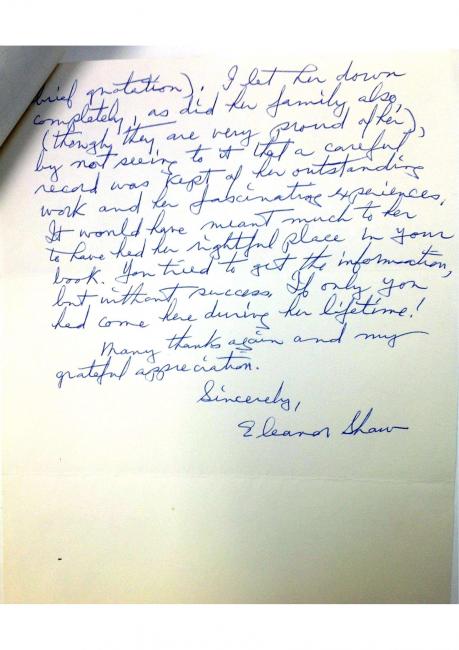 brief quotation). I let her down
completely, as did her family also,
(though they are very proud of her),
by not seeing to it that a careful
record was kept of her outstanding
work and her fascinating experiences.
It would have meant much to her
to have had her rightful place in your
book. You tried to get the information,
but without success. If only you
had come here during her lifetime!
Many thanks again and my
grateful appreciation.
Sincerely,
Eleanor Shaw